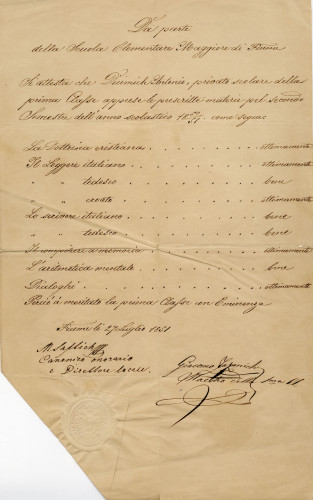 Da parte
della Scuola Elementare Maggiore di Fiume
Si attesta che Antonio, privato scolare della
prima Classe apprese le prescritte materie pel secondo
Semestre dell'anno scolastico come segue:
La Dottrina cristiana . . . . . . . . . ottimamente
Il Leggere italiano . . . . . . . . . ottimamente
" " tedesco . . . . . . . . . bene
" " croato . . . . . . . . . ottimamente
Lo scrivere italiano . . . . . . . . . bene
" " tedesco . . . . . . . . . bene
a memoria . . . . . . . . . ottimamente
L'aritmetica mentale . . . . . . . . . bene
Dialoghi . . . . . . . . . ottimamente
Perciò à meritato la prima Classe con Eminenza
Fiume li 27 Luglio 1851
Canonico onorario
e Direttore
Giacomo
Maestro della